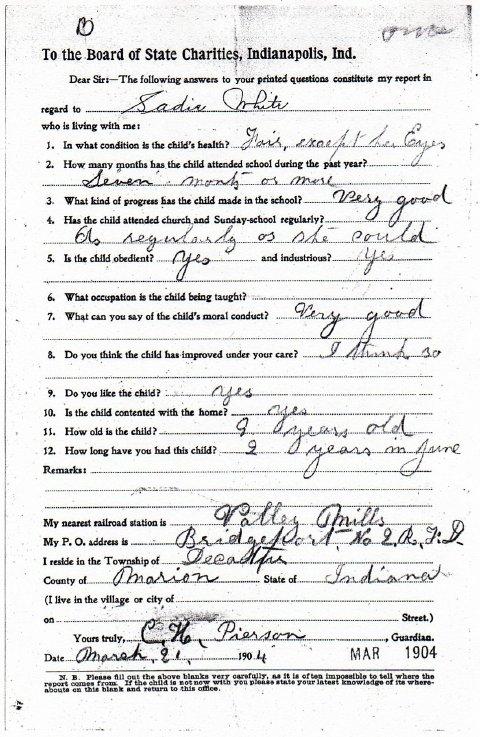 B
once
To the Board of State Charities, Indianapolis, Ind.
Dear Sir:—The following answers to your printed questions constitute my report in
regard to Sadie White
who is living with me:
1. In what condition is the child's health? Fair, except her Eyes
2. How many months has the child attended school during the past year?
Seven months or more
3. What kind of progress has the child made in the school? Very good
4. Has the child attended church and Sunday-school regularly?
As regularly as she could
5. Is the child obedient? Yes and industrious? Yes
6. What occupation is the child being taught?
7. What can you say of the child's moral conduct? Very good
8. Do you think the child has improved under your care? I think so
9. Do you like the child? yes
10. Is the child contented with the home? yes
11. How old is the child? 9 years old
12. How long have you had this child? 2 years in June
Remarks:
My nearest railroad station is Valley Mills
My P. O. address is Bridgeport No 2 R. F. D
I reside in the Township of Decatur
County of Marion State of Indiana
(I live in the village or city of
on Street.)
Yours truly, C. H. Pierson, Guardian.
Date March, 21, 1904 MAR 1904
N. B. Please fill out the above blanks very carefully, as it is often impossible to tell where the
report comes from. If the child is not now with you please state your latest knowledge of its where-
abouts on this blank and return to this office.